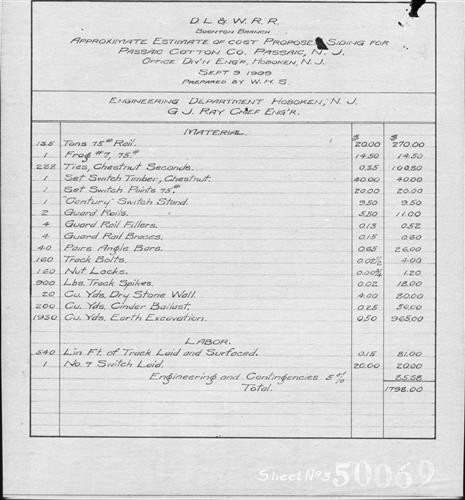 D. L. & W. R. R.
BOONTON BRANCH
APPROXIMATE ESTIMATE OF COST PROPOSE SIDING FOR
PASSAIC COTTON CO. PASSAIC, N. J.
OFFICE DIV'N ENG'R, HOBOKEN, N.J.
SEPT 9 1909
PREPARED BY W.H.S.
ENGINEERING DEPARTMENT HOBOKEN, N. J.
G J. RAY CHIEF ENG'R.
MATERIAL. $ $
13.5 Tons 75# Rail. 20.00 270.00
1 Frog #7, 75# 14.50 14.50
288 Ties, Chestnut Seconds. 0.35 100.80
1 Set Switch Timber, Chestnut. 40.00 40.00
1 Set Switch Points 75# 20.00 20.00
1 "Century" Switch Stand. 9.50 9.50
2 Guard Rails. 5.50 11.00
4 Guard Rail Fillers. 0.13 0.52
4 Guard Rail Braces. 0.15 0.60
40 Pairs Angle Bars. 0.65 26.00
160 Track Bolts. 0.02½ 4.00
160 Nut Locks. 0.00¾ 1.20
900 Lbs. Track Spikes. 0.02 18.00
20 Cu. Yds. Dry Stone Wall. 4.00 80.00
200 Cu. Yds. Cinder Ballast. 0.25 50.00
1930 Cu. Yds. Earth Excavation. 0.50 965.00
LABOR.
540 Lin. Ft. of Track Laid and Surfaced. 0.15 81.00
1 No. 7 Switch Laid. 20.00 20.00
Engineering and Contingencies 5% 85.58
Total. 1798.00
Sheet No 3 50069